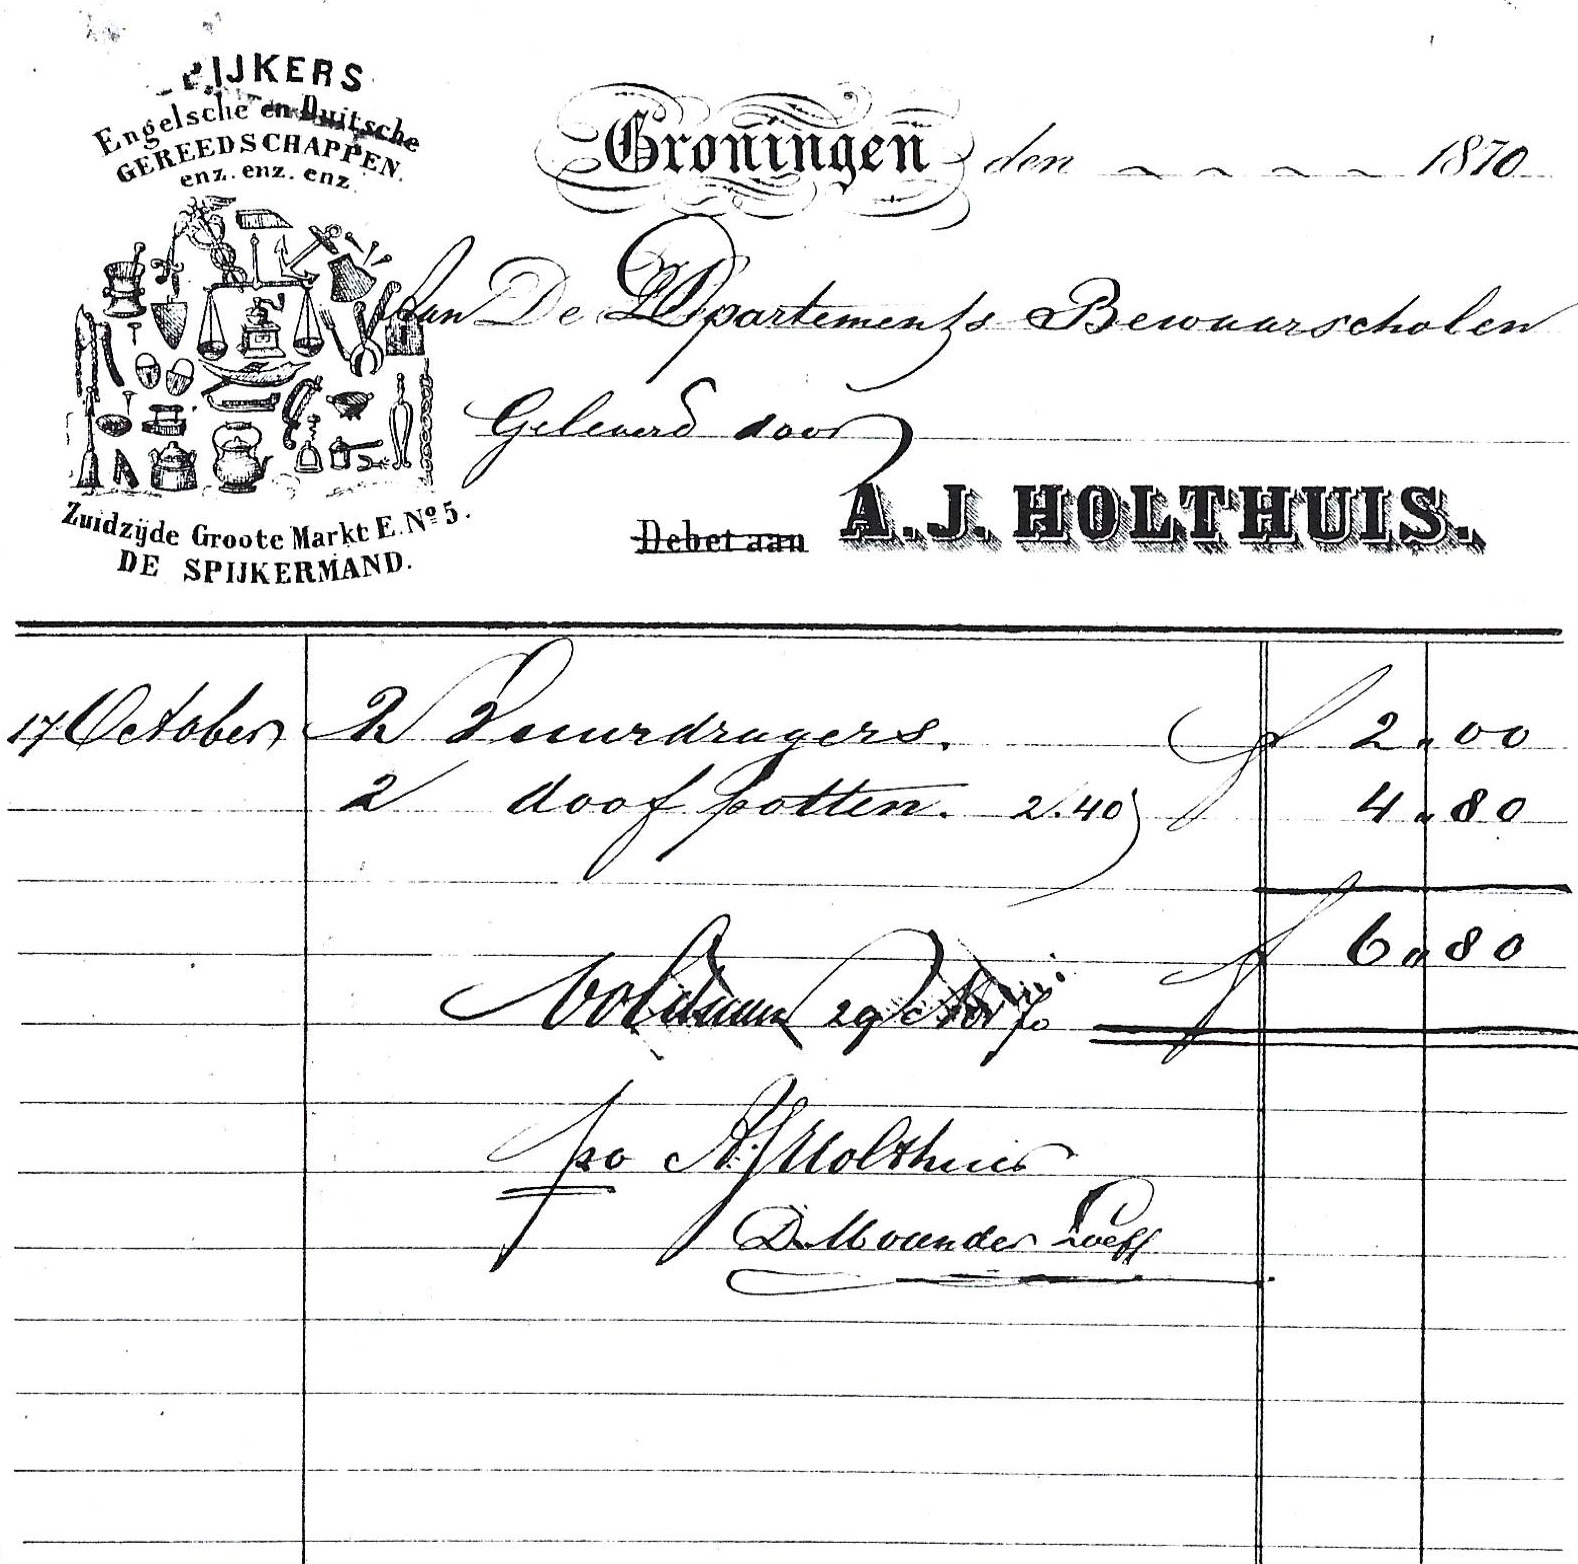 SPIJKERS
Engelsche en Duitsche
GEREEDSCHAPPEN.
enz. enz. enz.
Groningen den 1870
Aan De Departements Bewaarscholen
Geleverd door
Debet aan A. J. HOLTHUIS.
Zuidzijde Groote Markt E. No 5.
DE SPIJKERMAND.
17 October 2 Vuurdragers. f 2 " 00
2 doof potten. 2.40 4 " 80
f 6 " 80
Voldaan 29 70
po A. J. Holthuis